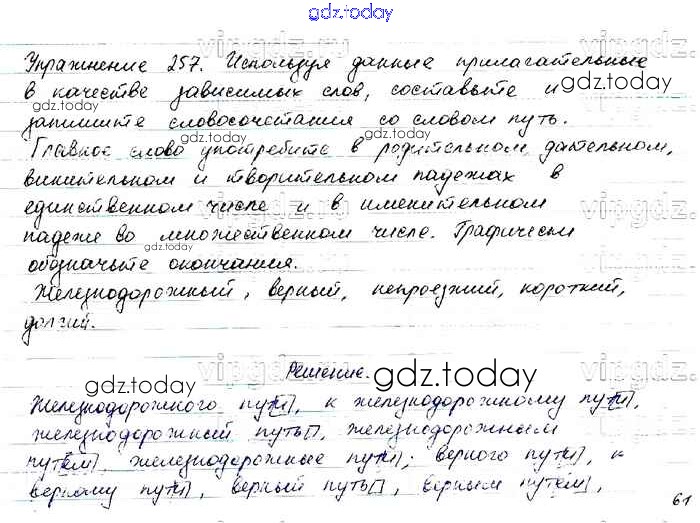 gdz.today
Упражнение 257. Используя данные прилагательные
в качестве зависимых слов, составьте и
gdz.today
gdz.today
запишите словосочетания со словом путь.
Главное слово употребите в родительном, дательном,
винительном и творительном падежах в
единственном числе и в именительном
падеже во множественном числе. Графически
gdz.today
обозначьте окончания.
Железнодорожный, верный, непроезжий, короткий,
долгий.
Решение.
gdz.today
gdz.today
Железнодорожного пути, к железнодорожному пути,
железнодорожный путь, железнодорожным
путём, железнодорожные пути; верного пути, к
верному пути, верный путь, верным путём,
gdz.today
61